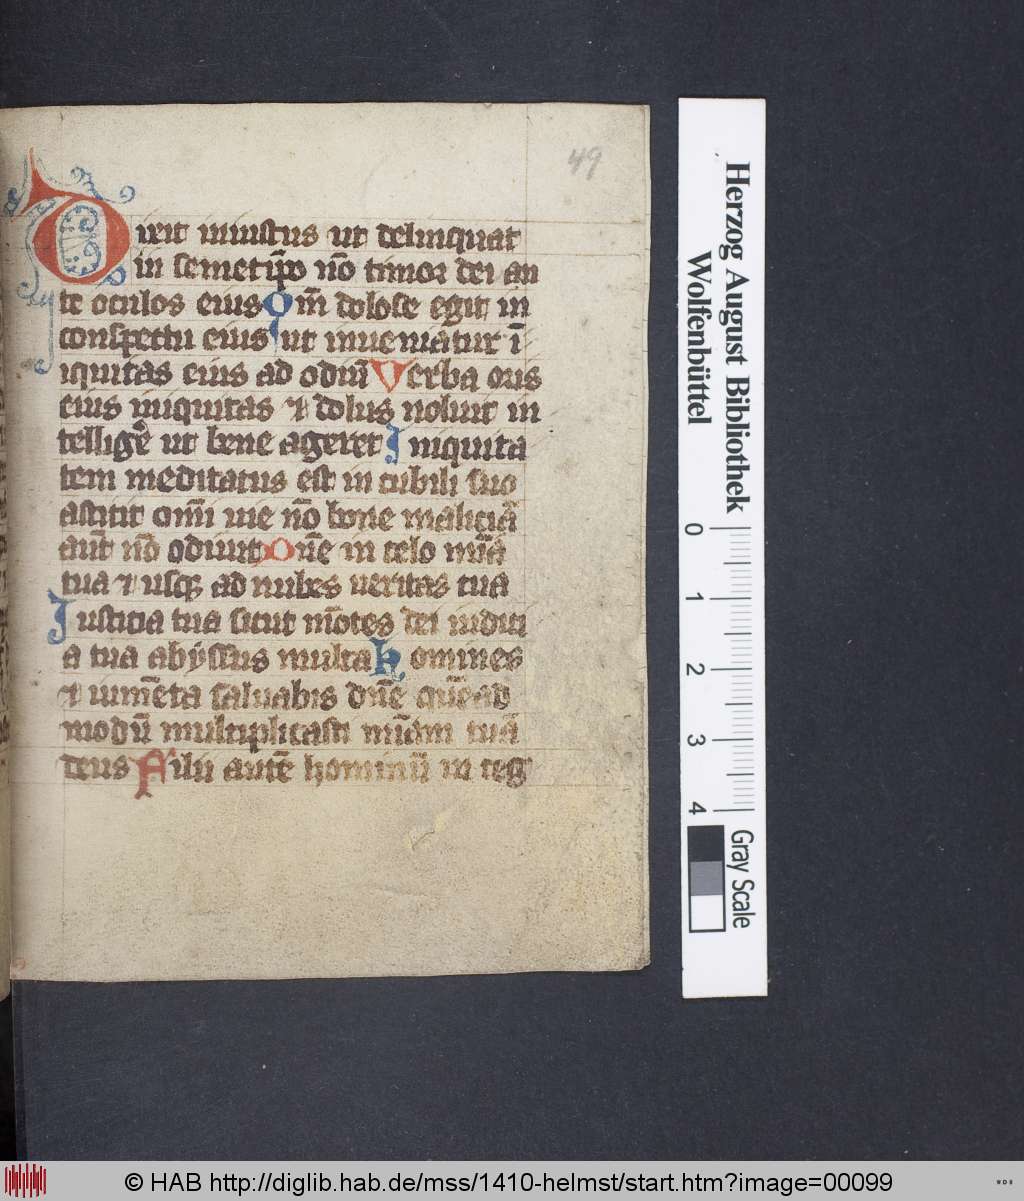 49
Dixit iniustus ut delinquat
in semetip̄o nō timor dei an
te oculos eius Om̄ dolose egit in
conspectu eius ut inueniatur ī
iquitas eius ad odiū Verba oris
eius iniquitas ⁊ dolus noluit in
tellige͛ ut bene ageret Iniquita
tem meditatus est in cubili suo
astitit om̄i uie nō bone maliciā
aūt nō odiuit Dn̄e in celo mīa
tua ⁊ usqꝫ ad nubes ueritas tua
Iusticia tua sicut mōtes dei iudici
a tua abyssus multa Homines
⁊ iumēta saluabis dn̄e quēad
modū multiplicasti mīam tuā
deus Filii autē hominū in teg
Herzog August Bibliothek
Wolfenbüttel
0 1 2 3 4
Gray Scale
© HAB http://diglib.hab.de/mss/1410-helmst/start.htm?image=00099